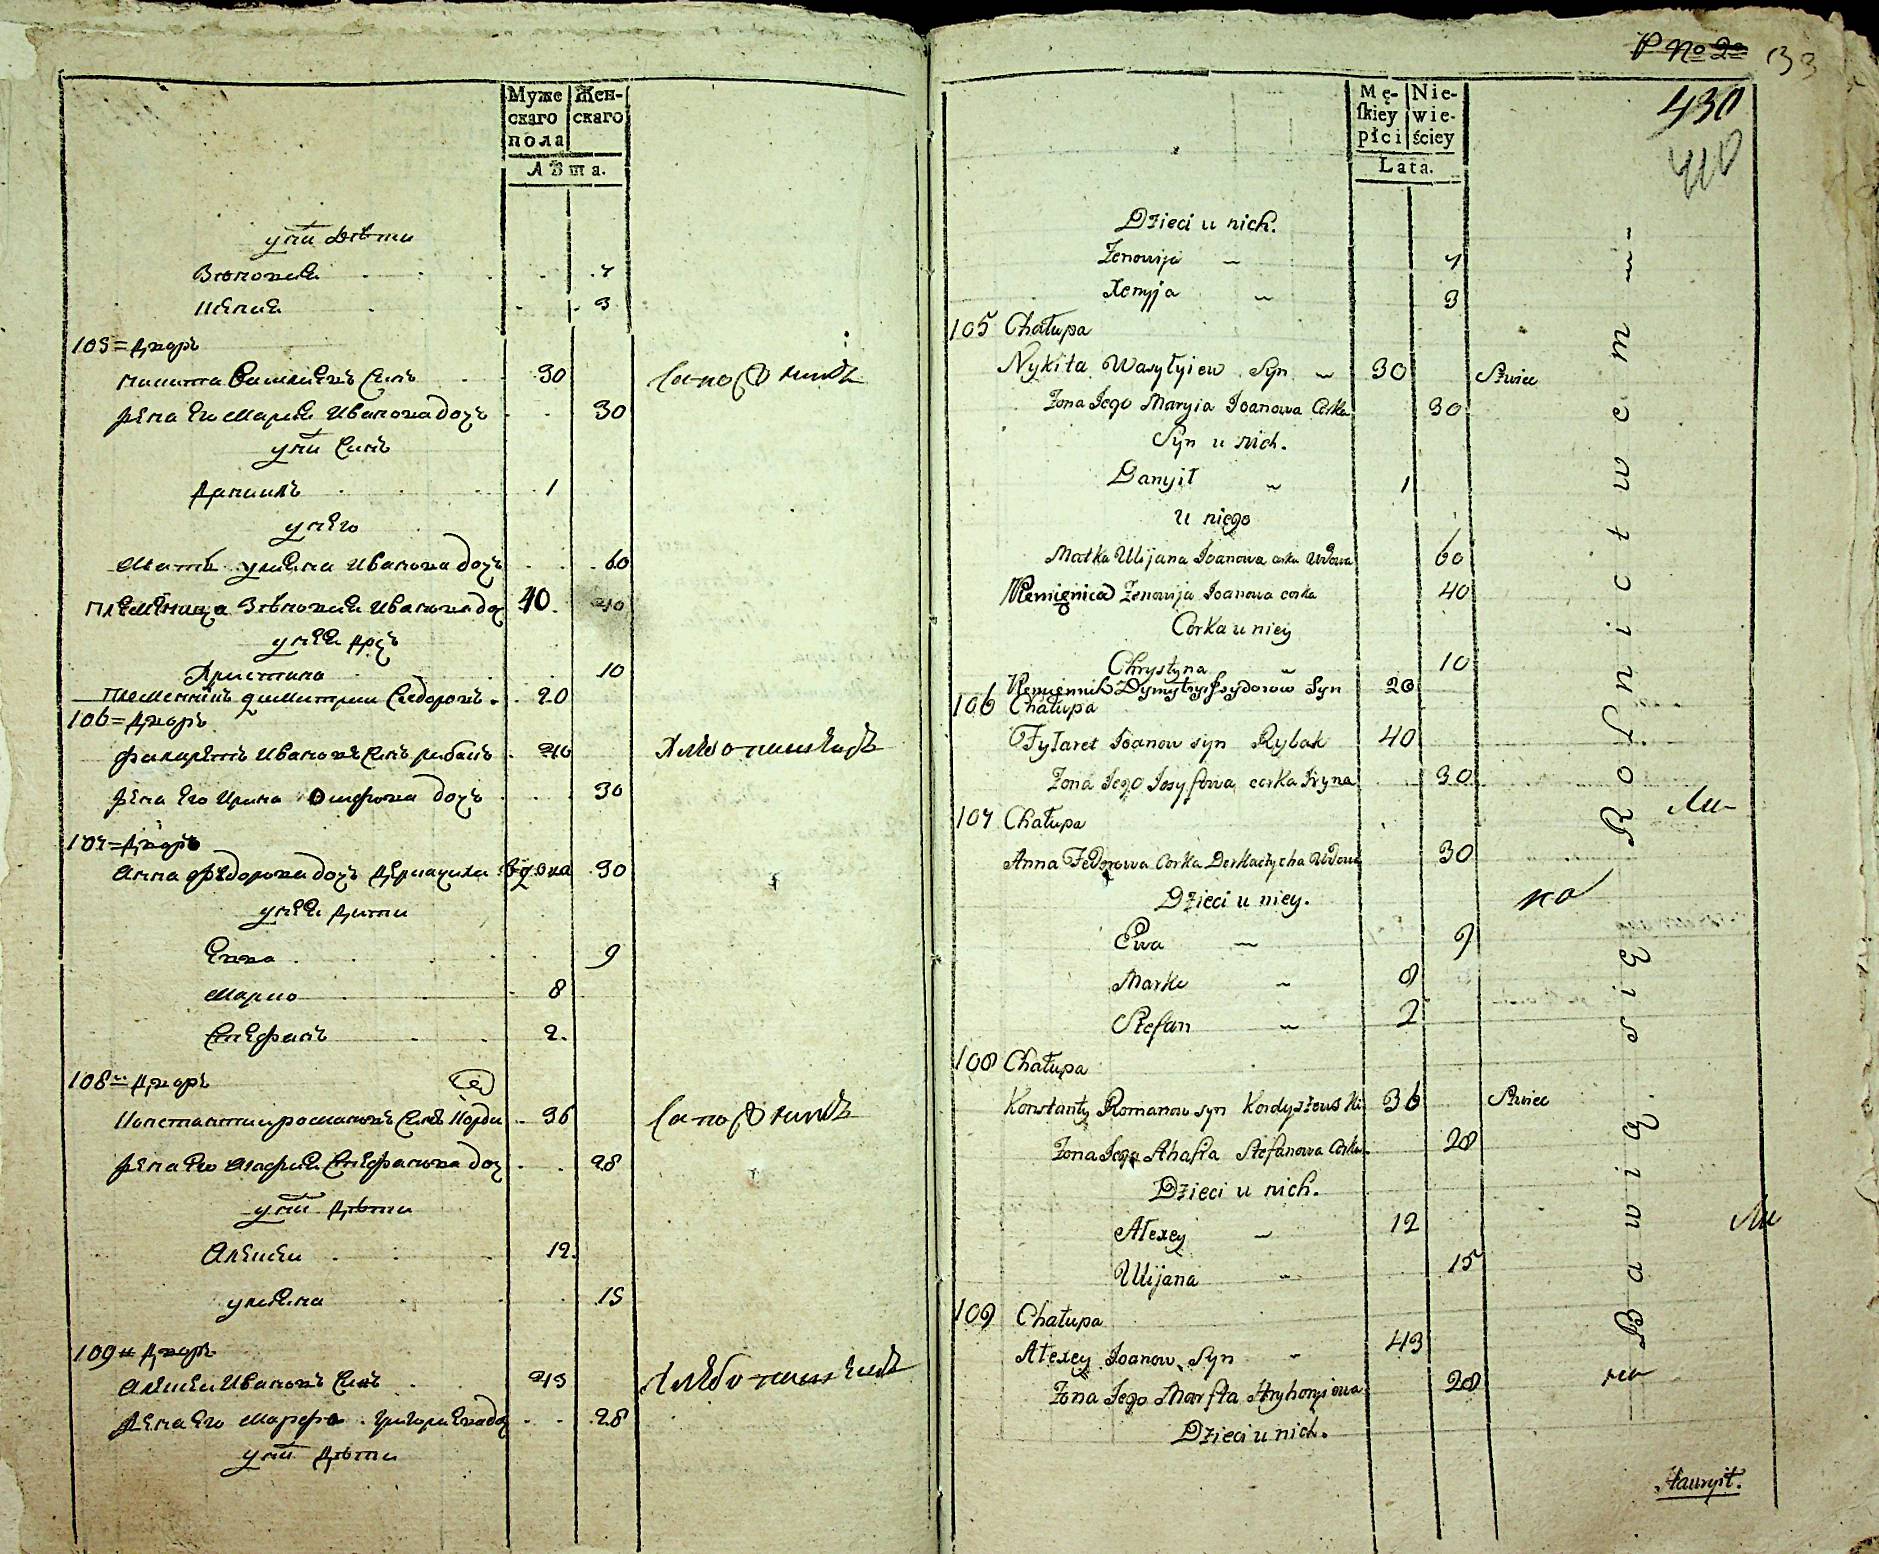 Муже Жен-
скаго скаго
пола
Лѣта.
у ни дѣти
Зѣновия 7
Ксения 3
105 = Дворъ
Никита Василиевъ Синъ 30
Жена Его Мария Иванова дочъ 30
у ни Синъ
Данииль 1
у него
Мать улияна Иванова дочъ 60
племѣница Зѣновия Иванова доч 40
у неи дочъ
Христина 10
племенникъ димитрии Сидоровъ 20
106 = Дворъ
Филаретъ Ивановъ Синъ рибакъ 40
Жена Его Ирина Осифова дочъ 30
107 = Дворъ
Анна Федорова дочъ Деркачиха вдова 30
у неи дити
Евва 9
Марко 8
Стефанъ 2
108 = Дворъ
Константии романовъ Синъ Корди 36
Жена Его Агафия Стефанова доч 28
у ни дѣти
Алексеи 12
улияна 15
109 = Дворъ
Алексеи Ивановъ Синъ 43
Жена Его Марфа григориева доч 28
у ни дѣти
Сапожникъ
Хлебопашецъ
Сапожникъ
Хлебопашецъ
P No 20 33
430
410
Mę- Nie-
ſkiey wie-
płci ściey
Lata.
Dzieci u nich.
Zenowija 7
Xenyja 3
105 Chałupa
Nykita Wasylyiew Syn 30 Szwiec
Zona Jego Maryia Joanowa Corka 30
Syn u nich.
Danyił 1
U niego
Matka Ulijana Joanowa corka Wdowa 60
Plemięnica Zenowija Joanowa corka 40
Corka u niey
Chrystyna 10
Plemiennik Dymytryi Syn 20
106 Chałupa
Fyłaret Joanow syn Rybak 40
Zona Jego Josyfowa corka Iryna 30
107 Chałupa
Anna Fedorowa Corka Derkaczycha Wdowa 30
Dzieci u niey.
Ewa 9
Marko 8
Stefan 2
108 Chałupa
Konstanty Romanow syn Kordyszewski 36 Szwiec
Zona Jego Ahafia Stefanowa Corka 28
Dzieci u nich.
Alexey 12
Ulijana 15
109 Chałupa
Alexey Joanow Syn 43
Zona Jego Marfta Hryhoryiowa 28
Dzieci u nich.
Bawią się Rolnictwem
Hauryił.